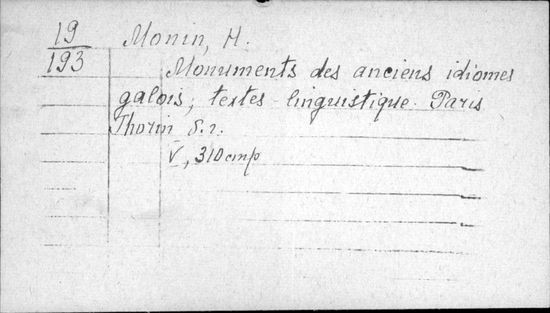 19
193
Monin, H.
Monuments des anciens idiomes
galois; textes - linguistique. Paris
Thorin S. г.
V, 310 стр